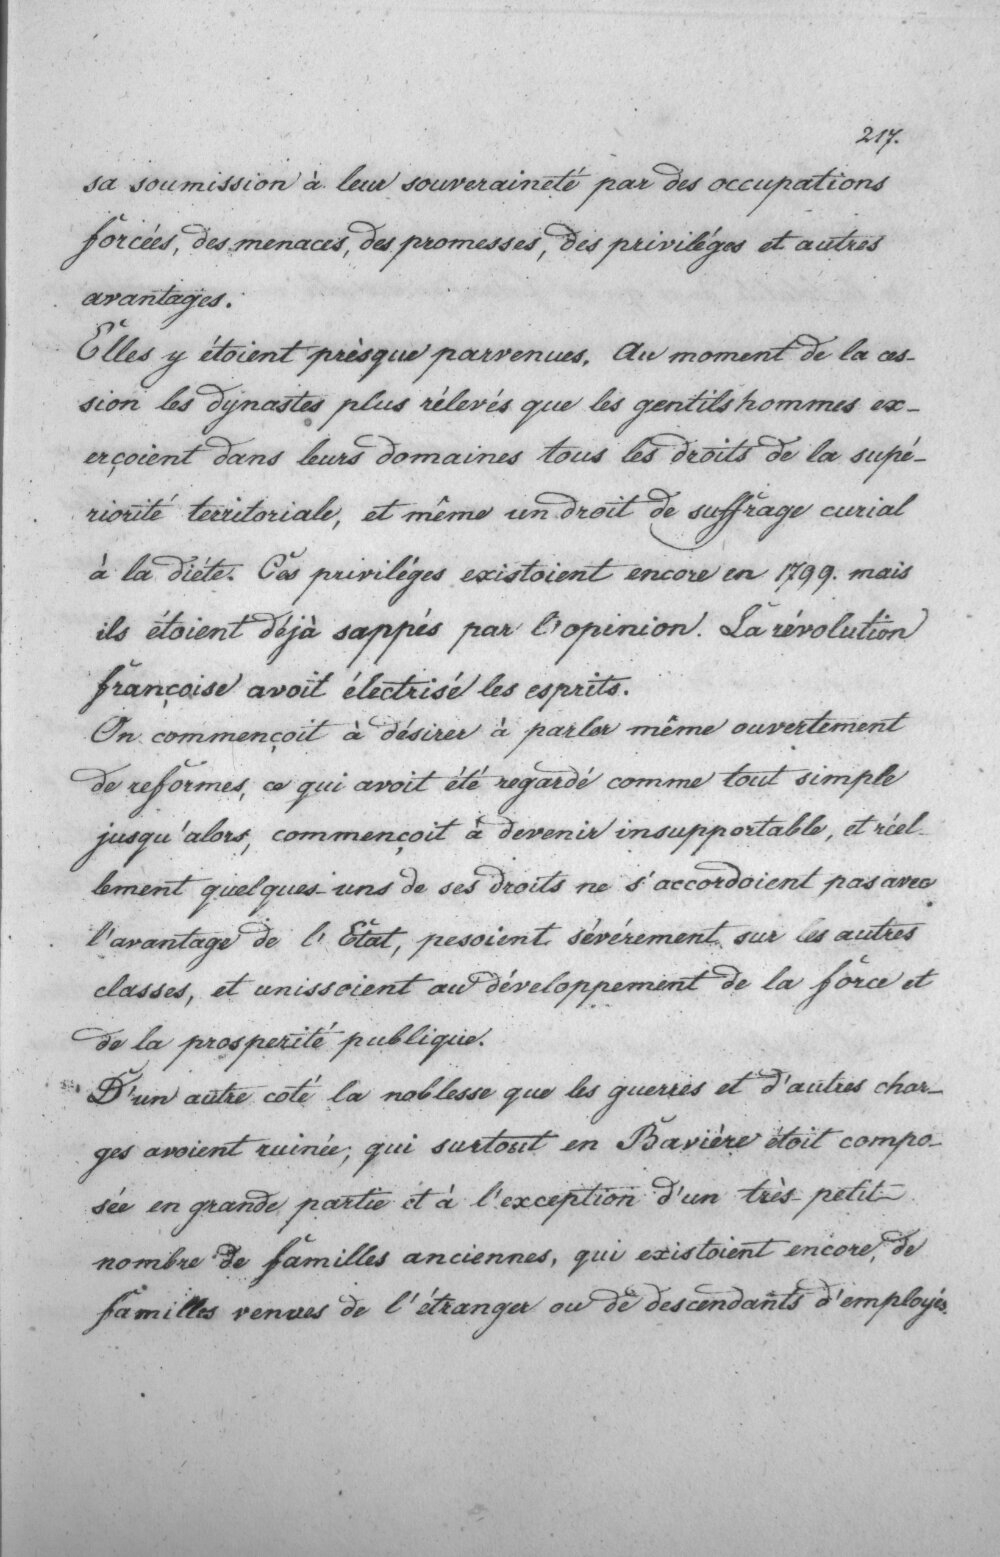 217.
sa soumission à leur souveraineté par des occupations
forcées, des menaces, des promesses, des priviléges et autres
avantages.
Elles y étoient prèsque parvenues. Au moment de la ces-
sion les dynastes plus rélevés que les gentilshommes ex-
erçoient dans leurs domaines tous les droits de la supé-
riorité territoriale, et même un droit de suffrage curial
à la diéte. Ces priviléges existoient encore en 1799. mais
ils étoient déjà sappés par l'opinion. La révolution
françoise avoit électrisé les esprits.
On commençoit à désirer à parler même ouvertement
de reformes, ce qui avoit été regardé comme tout simple
jusqu'alors, commençoit à devenir insupportable, et réel-
lement quelques uns de ses droits ne s'accordoient pas avec
l'avantage de l'Etat, pesoient sévérement sur les autres
classes, et unissoient au développement de la force et
de la prosperité publique.
D'un autre coté la noblesse que les guerres et d'autres char-
ges avoient ruinée, qui surtout en Bavière étoit compo-
sée en grande partie et à l'exception d'un très petit
nombre de familles anciennes, qui existoient encore, de
familles venues de l'étranger ou de descendants d'employés